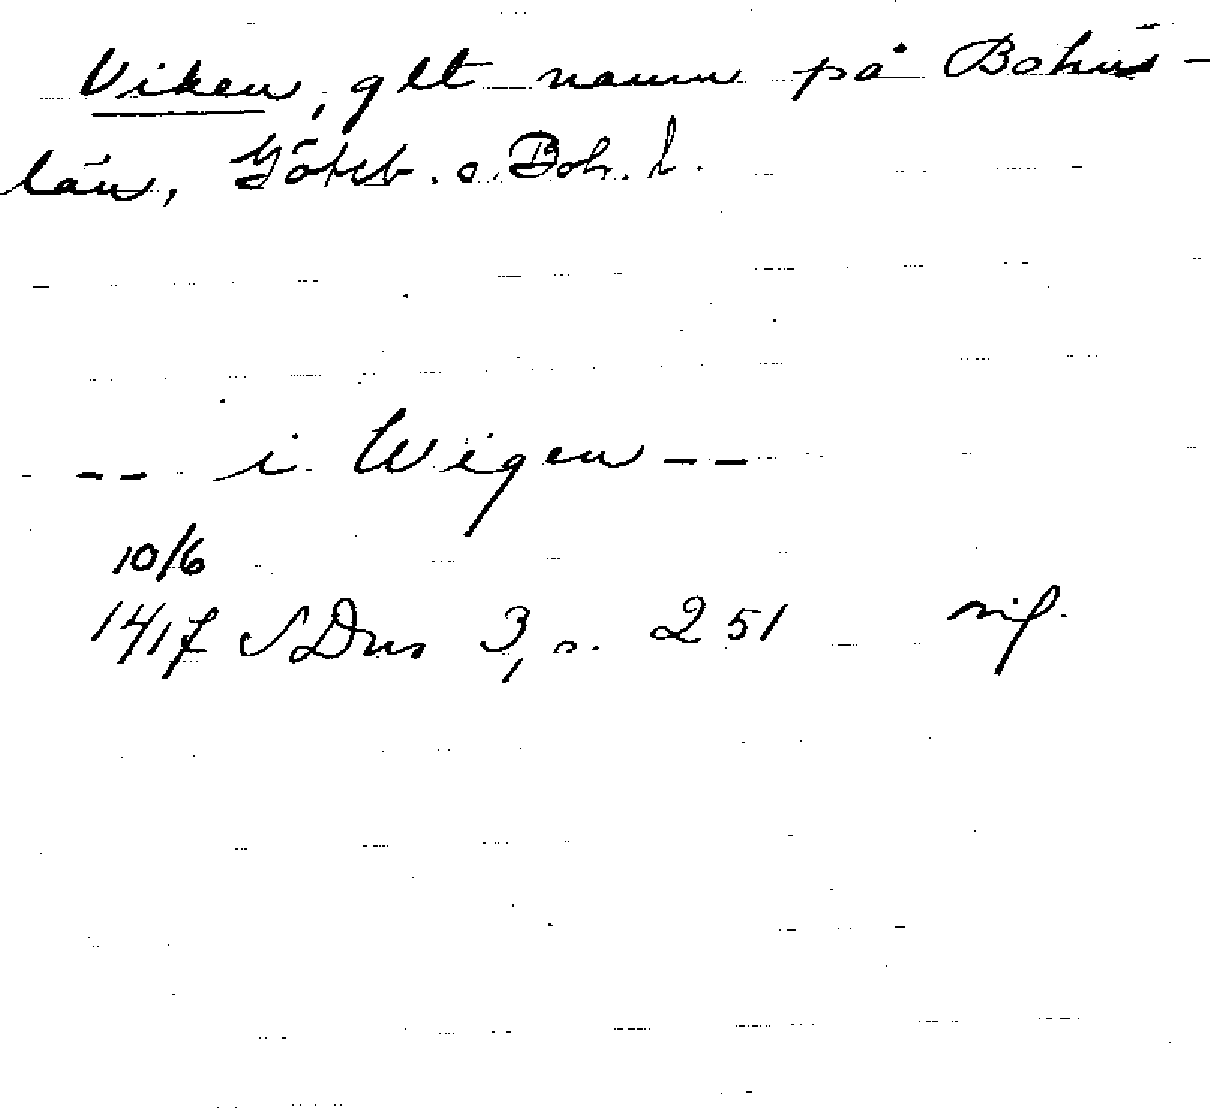 Viken, glt namn på Bohus-
län, Göteb. o. Boh. l.
-- i Wigen --
10/6
1417 SDns 3, s. 251